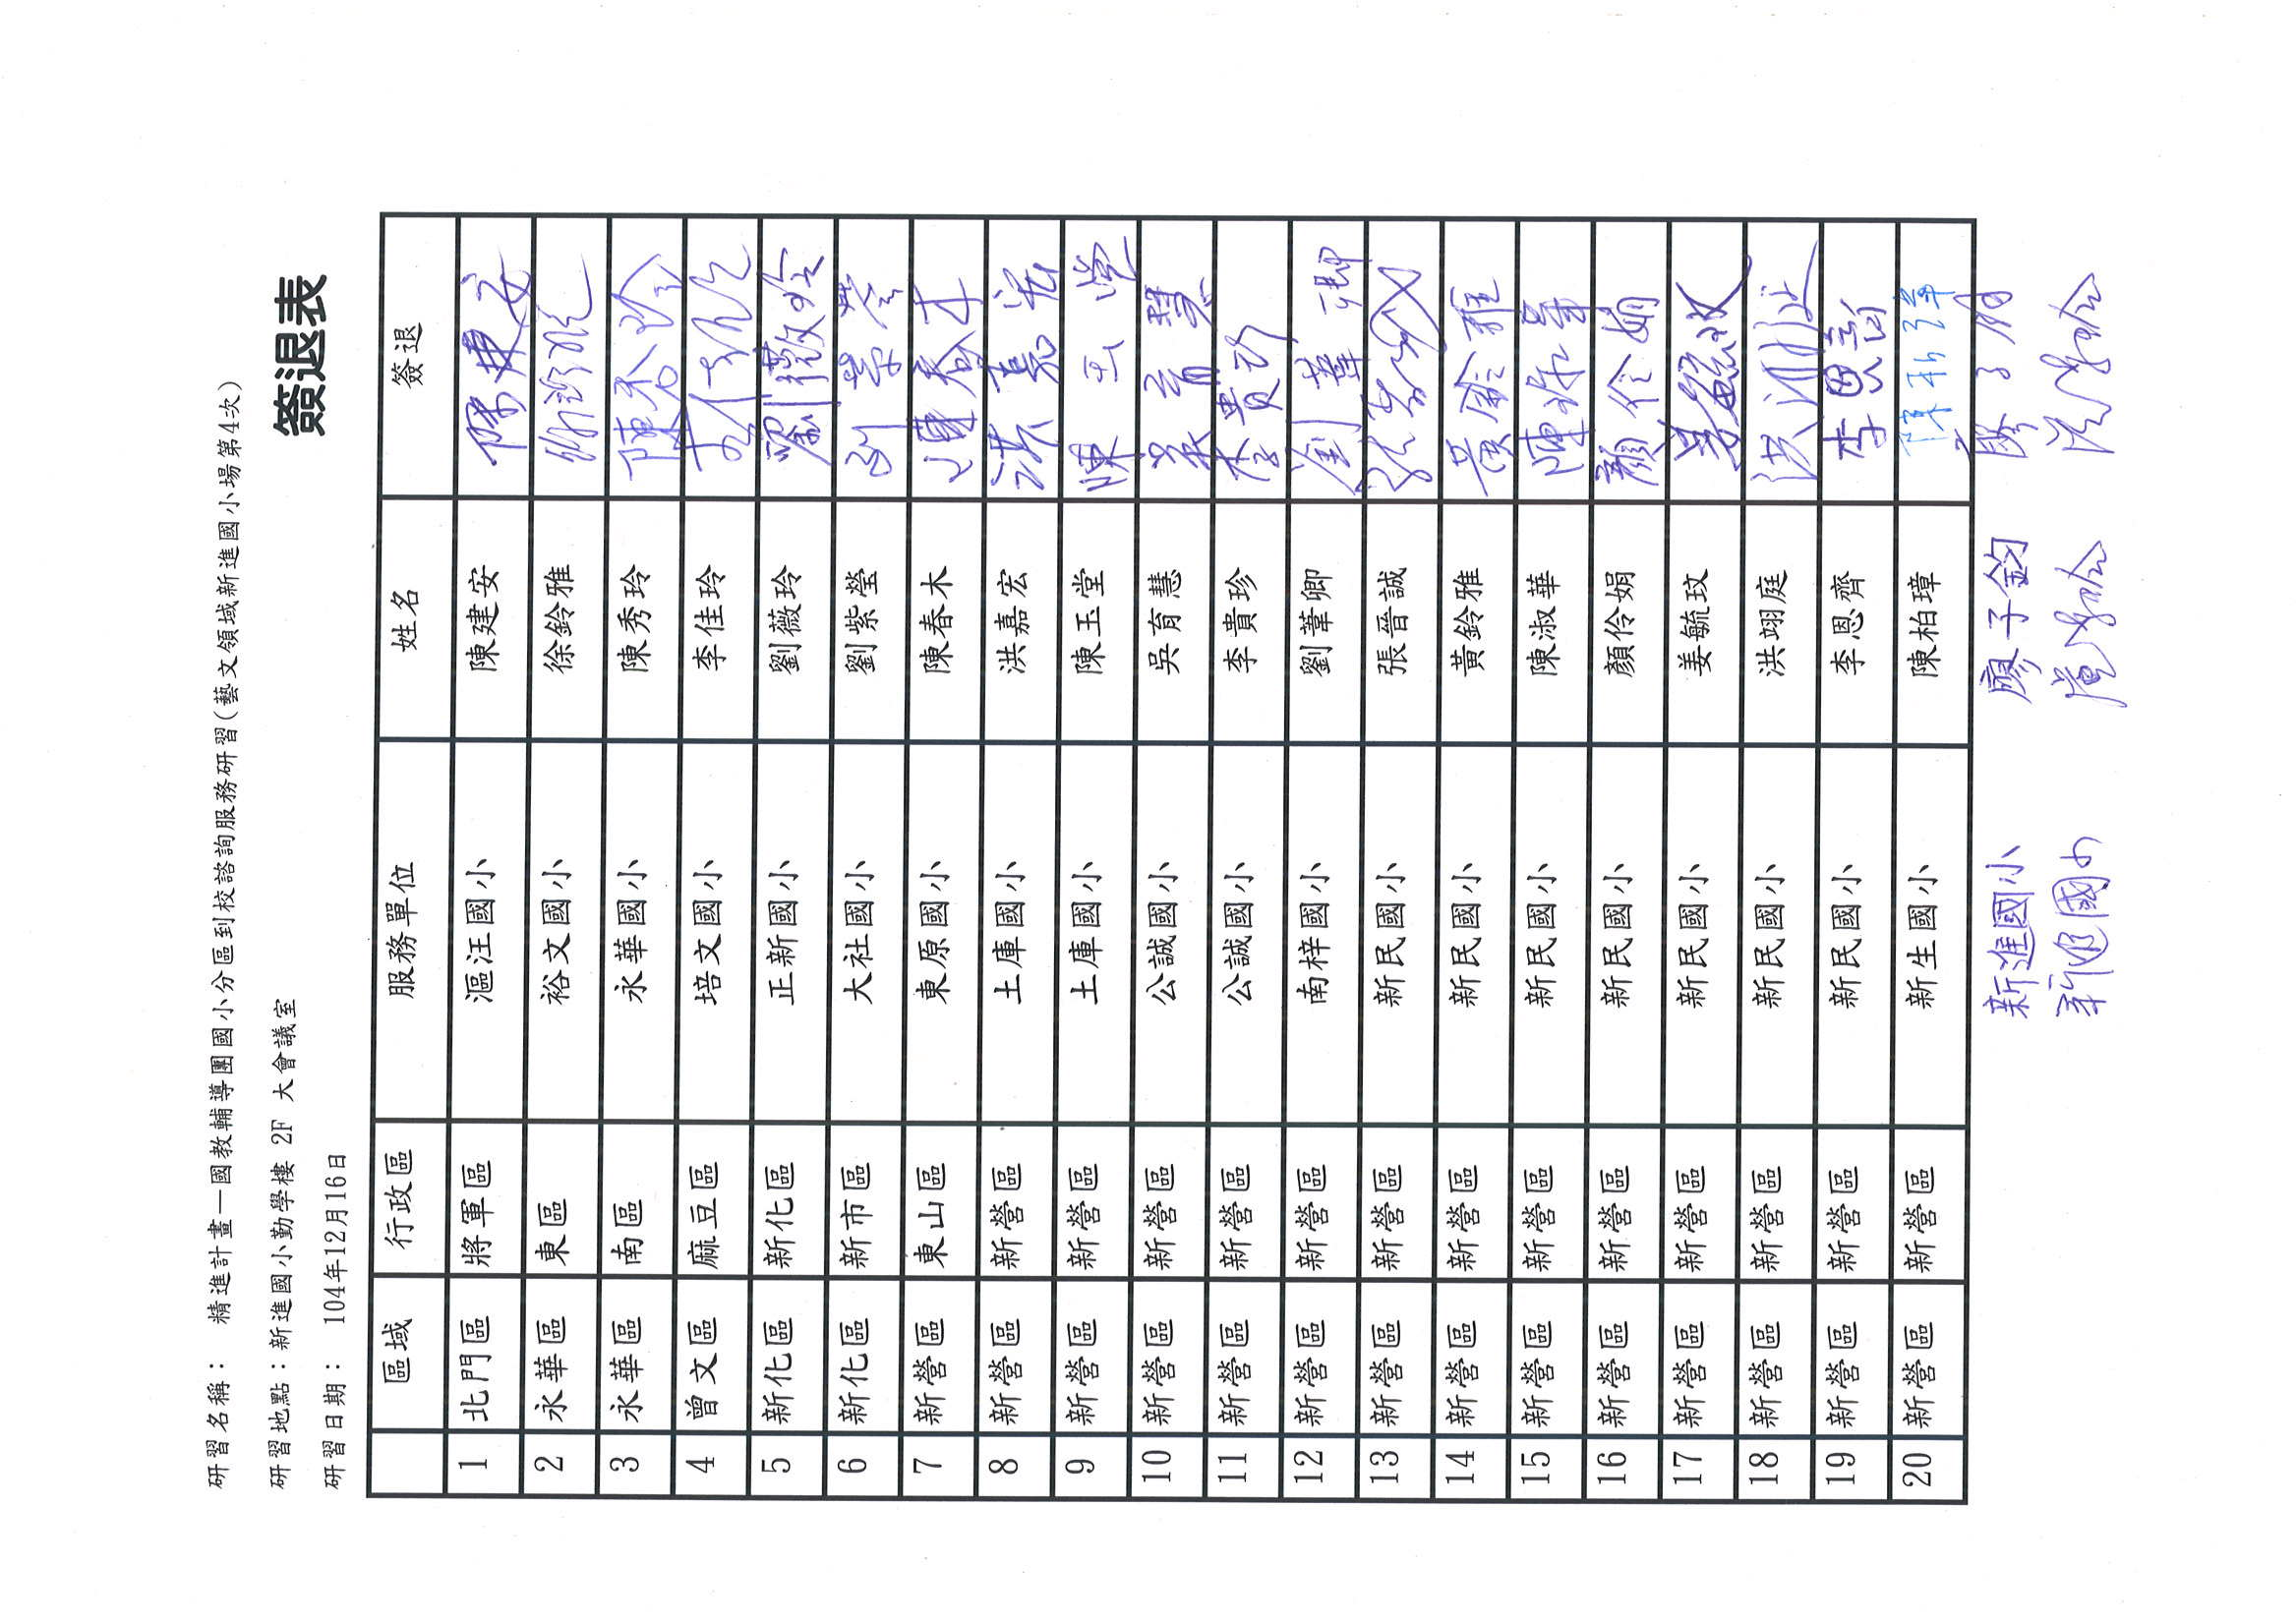 研習名稱： 精進計畫—國教輔導團國小分區到校諮詢服務研習(藝文領域新進國小場第4次)
研習地點：新進國小勤學樓 2F 大會議室
研習日期： 104年12月16日
簽退表
區域 行政區 服務單位 姓名 簽退
1 北門區 將軍區 漚汪國小 陳建安 陳建安
2 永華區 東區 裕文國小 徐鈴雅
3 永華區 南區 永華國小 陳秀玲 陳秀玲
4 曾文區 麻豆區 培文國小 李佳玲
5 新化區 新化區 正新國小 劉薇玲 劉薇玲
6 新化區 新市區 大社國小 劉紫瑩
7 新營區 東山區 東原國小 陳春木 陳春木
8 新營區 新營區 土庫國小 洪嘉宏 洪嘉宏
9 新營區 新營區 土庫國小 陳玉堂 陳玉堂
10 新營區 新營區 公誠國小 吳育慧 吳育慧
11 新營區 新營區 公誠國小 李貴珍 李貴珍
12 新營區 新營區 南梓國小 劉葦卿 劉葦卿
13 新營區 新營區 新民國小 張晉誠
14 新營區 新營區 新民國小 黃鈴雅 黃鈴雅
15 新營區 新營區 新民國小 陳淑華 陳淑華
16 新營區 新營區 新民國小 顏伶娟 顏伶娟
17 新營區 新營區 新民國小 姜毓玟 姜毓玟
18 新營區 新營區 新民國小 洪翊庭
19 新營區 新營區 新民國小 李恩齊 李恩齊
20 新營區 新營區 新生國小 陳柏璋 陳柏璋
新進國小 廖子鈞
新進國小